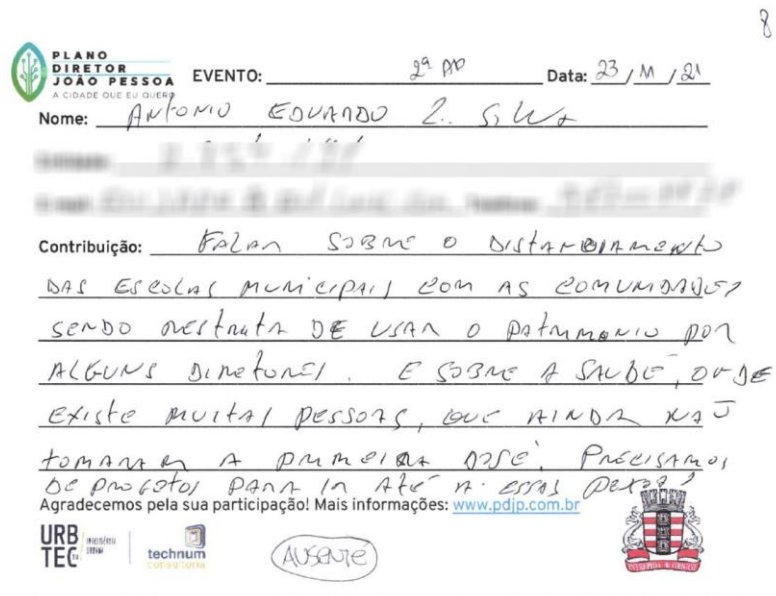 8
PLANO
DIRETOR
JOÃO PESSOA
A CIDADE QUE EU QUERO
EVENTO: 2ª AP Data: 23/11/21
Nome: ANTONIO EDUARDO L. SILVA
Contribuição: FALAR SOBRE O DISTANCIAMENTO
DAS ESCOLAS MUNICIPAIS COM AS COMUNIDADES
SENDO RESTRITA DE USAR O PATRIMONIO POR
ALGUNS DIRETORES. E SOBRE A SAUDE, ONDE
EXISTE MUITAS PESSOAS, QUE AINDA NÃO
TOMARAM A PRIMEIRA DOSE. PRECISAMOS
DE PROJETOS PARA IR ATÉ A ESSAS
Agradecemos pela sua participação! Mais informações: www.pdjp.com.br
URB
TEC
technum
consultoria
AUSENTE
INTREPIDA